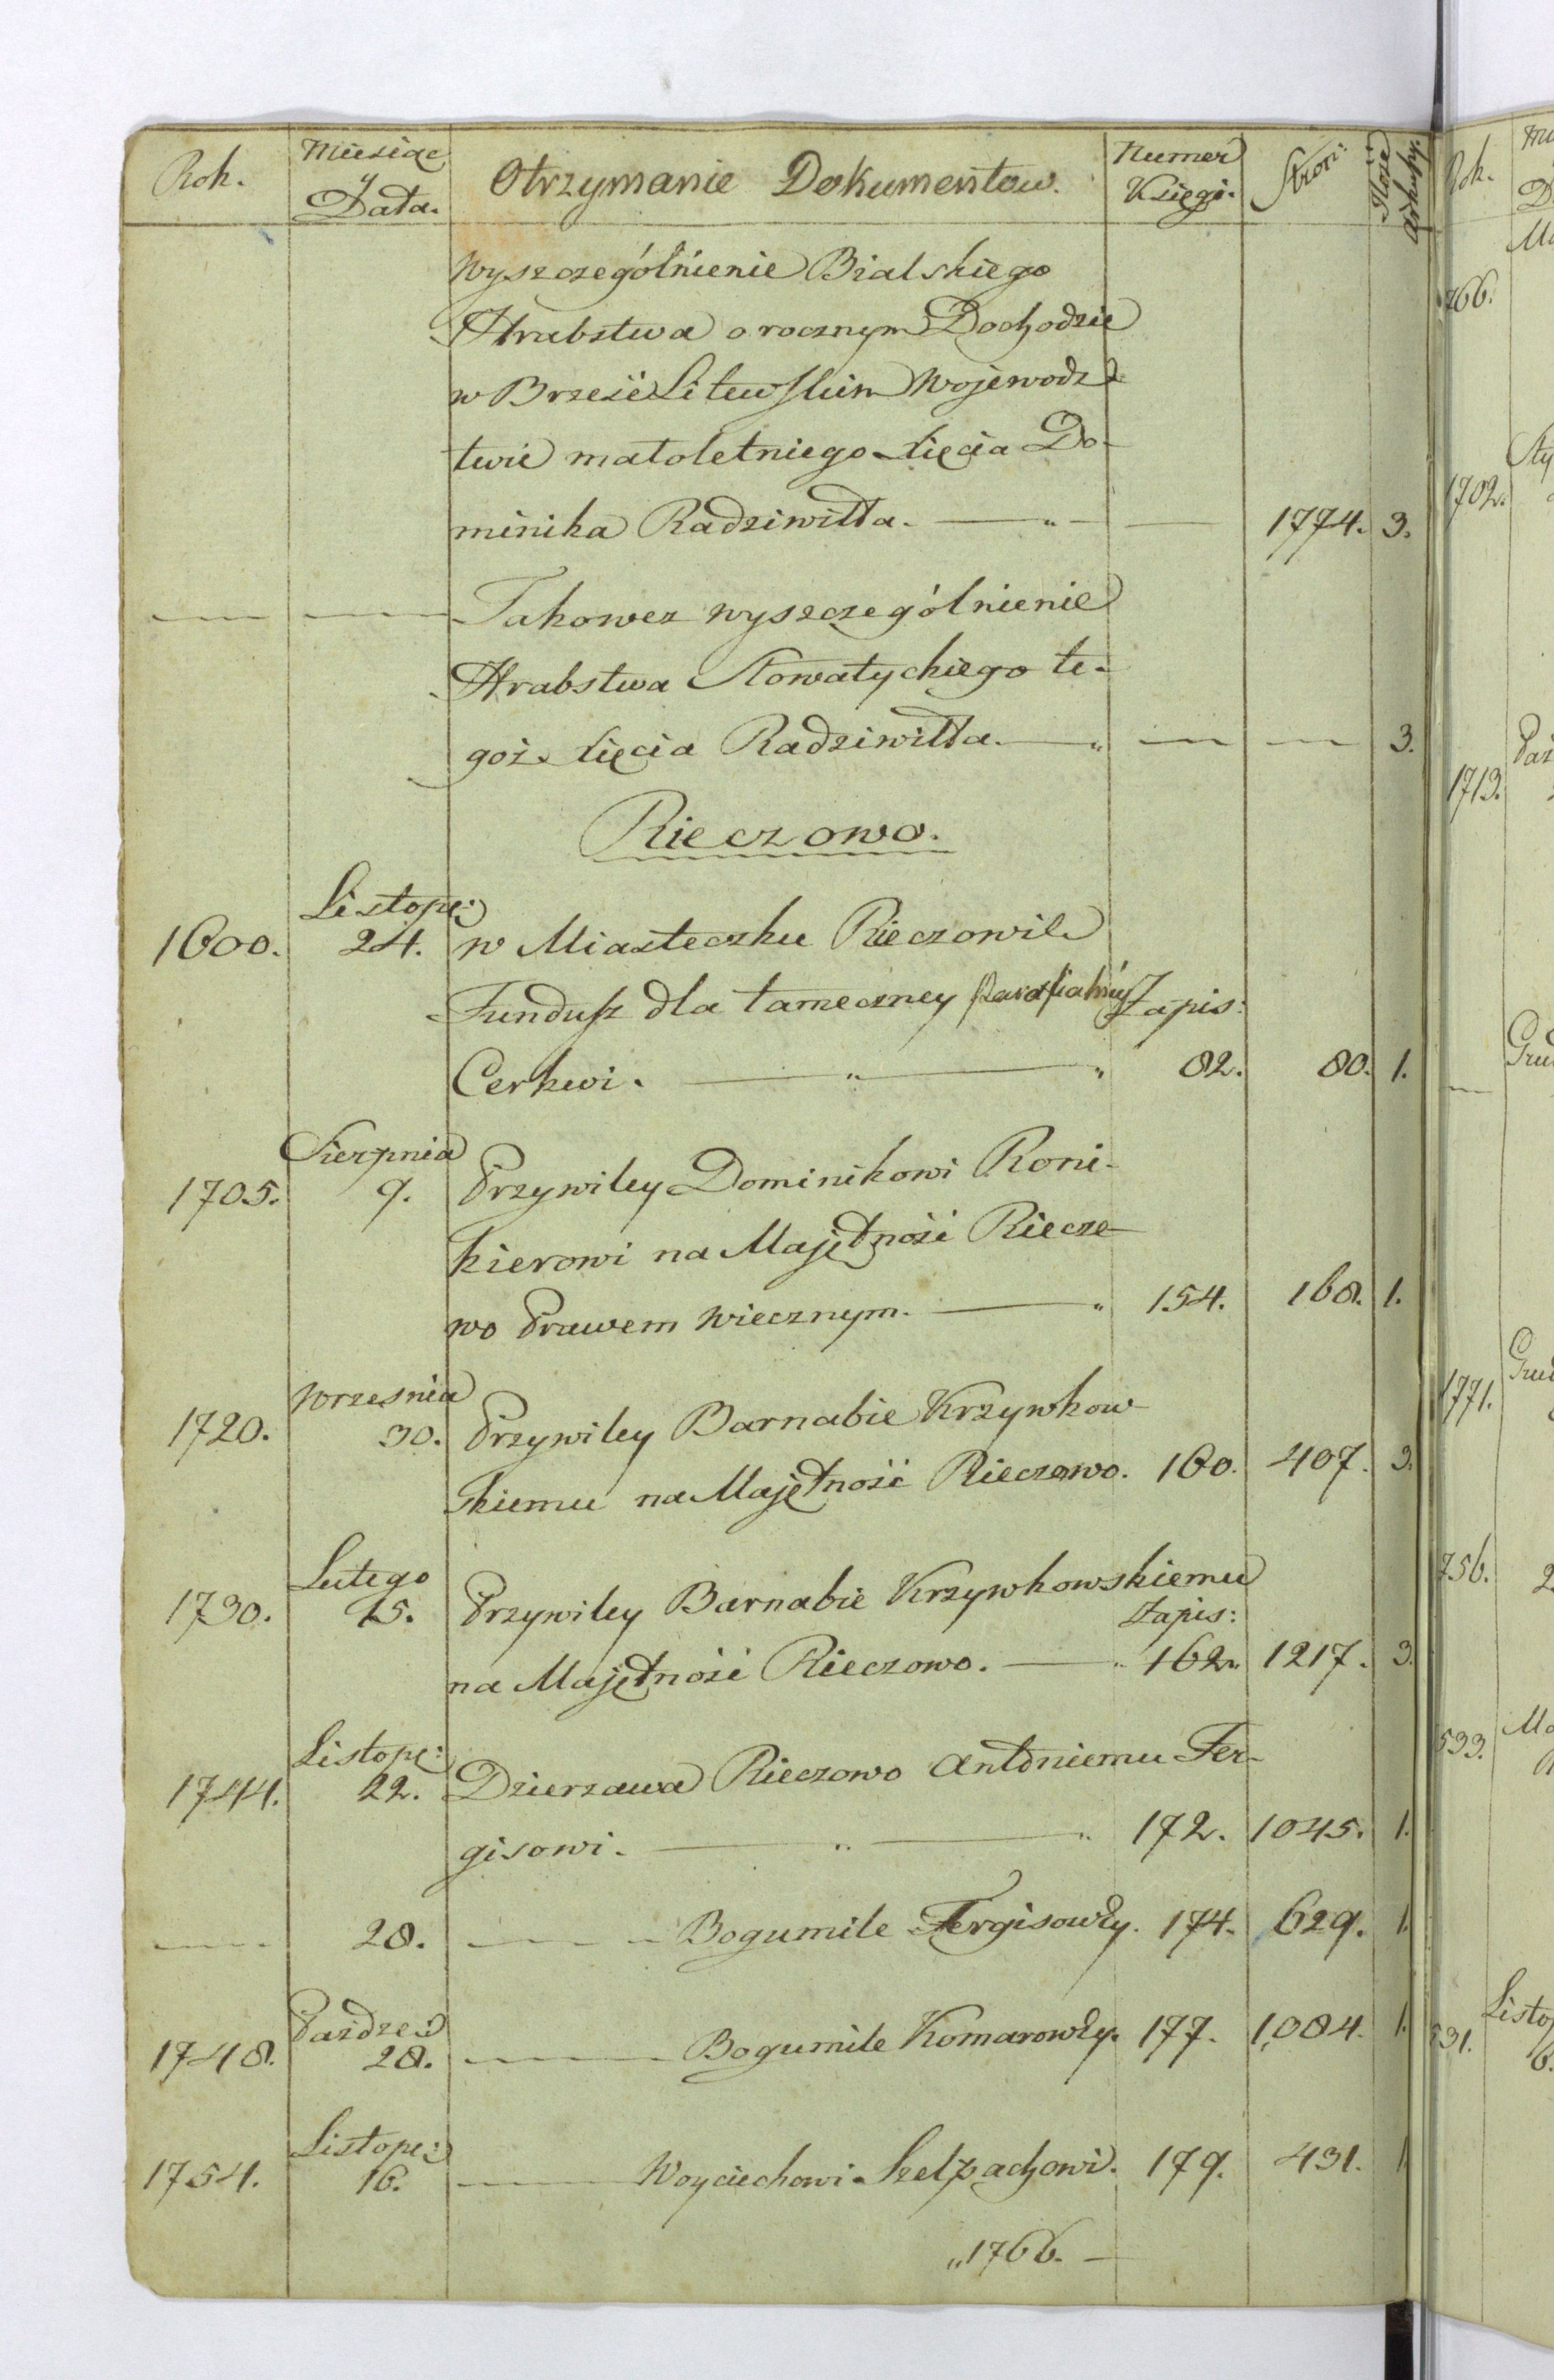 Rok. Miesiąc y Data. Otrzymanie Dokumentow. Numer Księgi. Stron: Ilość arkuszy.
Wyszczegółnienie Bialskiego
Hrabstwa o rocznym Dochodzie
w Brześć Litewskim Wojewodz
twie małoletniego Xięcia Do-
minika Radziwiłła. — " — — 1774. 3.
— — Takowez wyszczególnienie
Hrabstwa Sławatyckiego te-
goż Xięcia Radziwiłła. — " — — 3.
Rieczowo.
Listop:
1600. 24. w Miasteczku Rieczowie
Fundusz dla tameczney parafialney Zapis:
Cerkwi. — " — " 82. 80. 1.
Sierpnia
1705. 9. Przywiley Dominikowi Roni-
kierowi na Majętność Riecze-
wo Prawem wiecznym. — " 154. 168. 1.
Wrzesnia
1720. 30. Przywiley Barnabie Krzywkow
skiemu na Majętność Rieczowo. 160. 407. 3.
Lutego
1730. 15. Przywiley Barnabie Krzywkowskiemu
Zapis:
na Majętność Rieczowo. — " 162. 1217. 3.
Listop:
1744. 22. Dzierzawa Rieczowo Antoniemu Fer-
gisowi. — " — " 172. 1045. 1.
— 28. — Bogumile Fergisowey. 174. 629. 1.
Paźdze:
1748. 28. — Bogumile Komarowey. 177. 1,084. 1.
Listop:
1754. 16. — Woyciechowi Szelpachowi. 179. 431. 1
"1766. —
Rok.
766.
1702.
1713.
—
1771.
756. 2.
533.
531. 6.